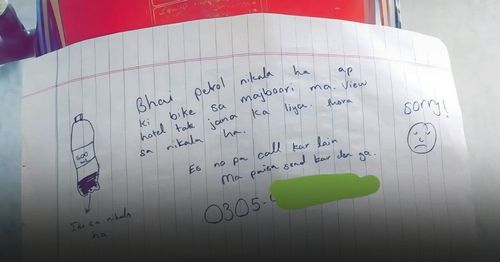 Bhai petrol nikala ha ap
ki bike sa majboori ma. View
hotel tak jana ka liya. hora
sa nikala ha.
Es no pa call kar lain
Ma paisa send kar don ga.
0305-
sorry!
500
Is sa nikala
ha